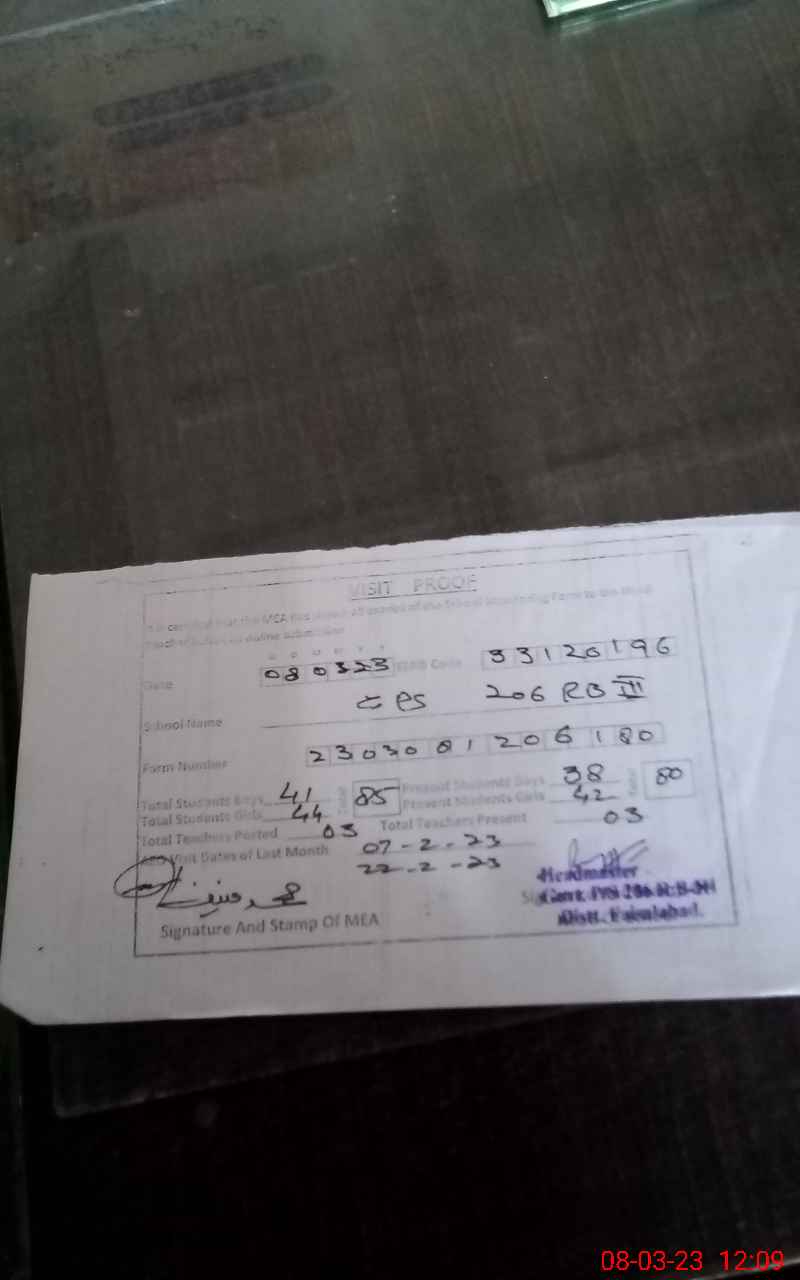 VISIT PROOF
It is certified that the MEA has shown all entries of the School Monitoring Form to the Head
Teacher before online submission
Date 080323 EMIS Code 33120196
School Name GPS 206 RB III
Form Number 2303081206180
Total Students Boys 41 85 Present Students Boys 38 80
Total Students Girls 44 Present Students Girls 42
Total Teachers Posted 03 Total Teachers Present 03
Visit Dates of Last Month 07-2-23
22-2-23
Headmaster
Govt. P/S 206 R.B-III
Distt. Faisalabad.
Signature And Stamp Of MEA
08-03-23 12:09